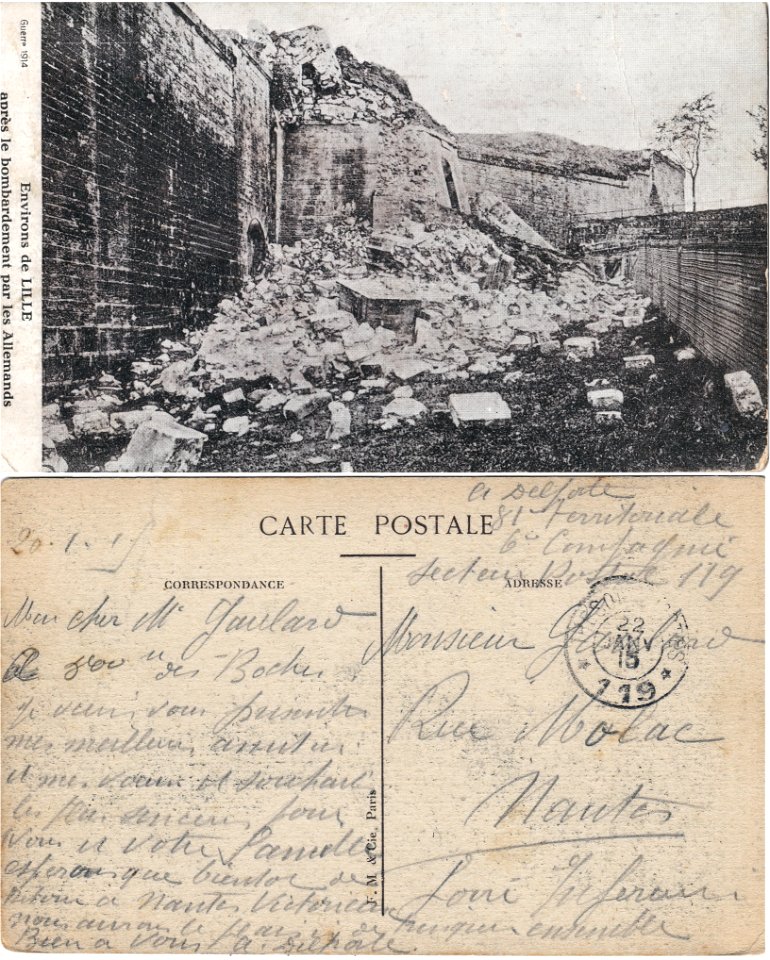 Guerre 1914
Environs de LILLE
après le bombardement par les Allemands
A Delfolie
81 Territoriale
6e Compagnie
Secteur Postal 119
CARTE POSTALE
20.1.15
CORRESPONDANCE
ADRESSE
22
JANV
15
* 119 *
Mon cher Mr Gaulard
A 800 m des Boches
je viens vous présenter
mes meilleurs amitiés
et mes voeux et souhaits
les plus sincères pour
vous et votre famille
esperons que bientot de
retour a Nantes Victorieux
nous aurons le plaisir de trinquer ensemble
Bien a vous
Monsieur Gaulard
Rue Molac
Nantes
Loire Inferieure
J. M. & Cie, Paris